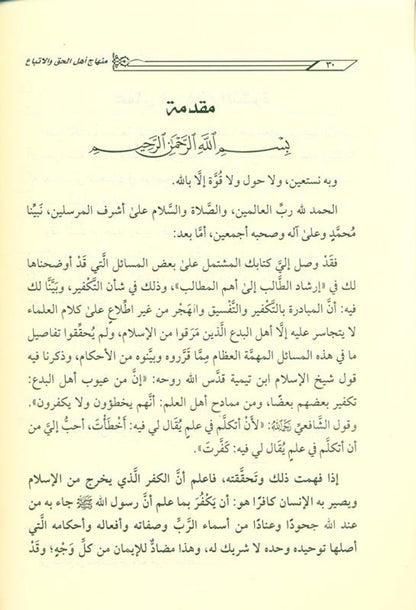 ٣٠ منهاج أهل الحق والاتباع
مقدمة
بِسْمِ اللَّهِ الرَّحْمَٰنِ الرَّحِيمِ
وبه نستعين، ولا حول ولا قُوَّة إلَّا بالله.
الحمد لله ربِّ العالمين، والصَّلاة والسَّلام علىٰ أشرف المرسلين، نَبيِّنا
مُحمَّدٍ وعلىٰ آله وصحبه أجمعين، أمَّا بعد:
فقَدْ وصل إليَّ كتابك المشتمل علىٰ بعض المسائل الَّتي قَدْ أوضحناها
لك في «إرشاد الطَّالب إلىٰ أهم المطالب»، وذلك في شأن التَّكفير، وبَيَّنَّا لك
فيه: أنَّ المبادرة بالتَّكفير والتَّفسيق والهَجْر من غير اطِّلاعٍ علىٰ كلام العلماء
لا يتجاسر عليه إلَّا أهل البدع الَّذين مَرَقوا من الإسلام، ولم يُحقِّقوا تفاصيل
ما في هذه المسائل المهمَّة العظام مِمَّا قَرَّروه وبيَّنوه من الأحكام، وذكرنا فيه
قول شيخ الإسلام ابن تيمية قدَّس الله روحه: «إنَّ من عيوب أهل البدع:
تكفير بعضهم بعضًا، ومن ممادح أهل العلم: أنَّهم يخطؤون ولا يكفرون».
وقول الشَّافعيِّ رَحِمَهُ اللَّهُ: «لَأَنْ أتكلَّم في علمٍ يُقَال لي فيه: أخْطَأْتَ، أحبُّ إليَّ من
أن أتكلَّم في علمٍ يُقَال لي فيه: كَفَّرتَ».
إذا فهمت ذلك وتَحقَّقته، فاعلم أنَّ الكفر الَّذي يخرج من الإسلام
ويصير به الإنسان كافرًا هو: أن يَكْفُرَ بما علم أنَّ رسول الله ﷺ جاء به من
عند الله جحودًا وعنادًا من أسماء الرَّبِّ وصفاته وأفعاله وأحكامه الَّتي
أصلها توحيده وحده لا شريك له، وهذا مضادٌّ للإيمان من كلِّ وَجْهٍ؛ وقَدْ